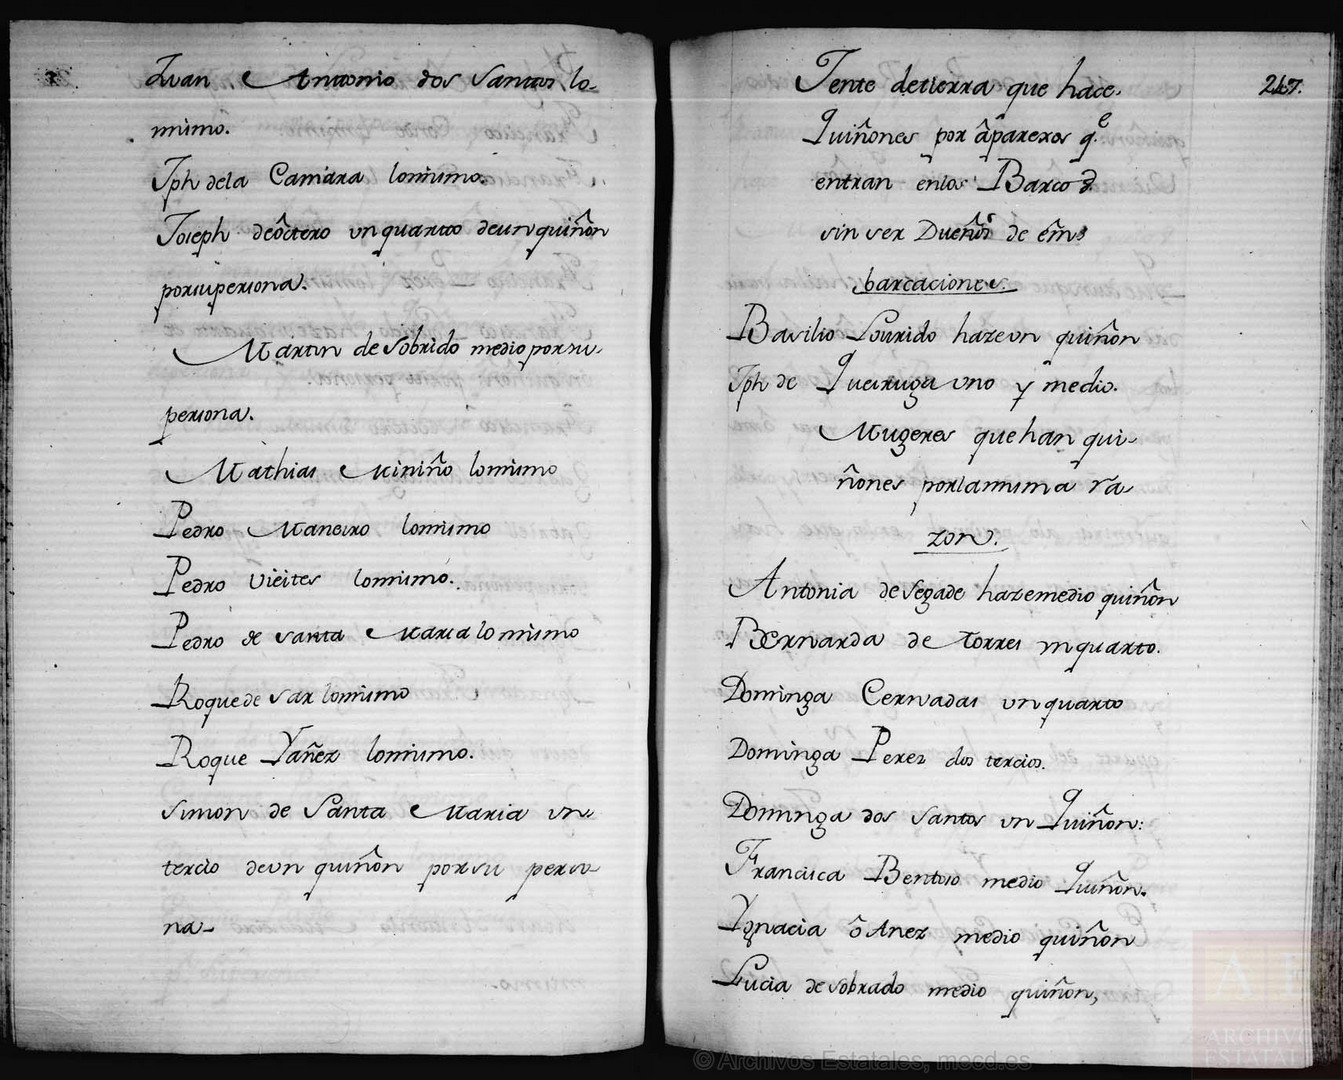 Juan Antonio dos Santos lo-
mismo.
Jph dela Camara lomismo.
Joseph deôctero vn quarto deun quiñon
porsu persona.
Martin de Sobrido medio por su
persona.
Mathias Miniño lo mismo
Pedro Maneiro lomismo
Pedro Vieites lomismo.
Pedro de Santa Maria lo mismo
Roque de Sar lo mismo
Roque Yañez lomismo.
Simon de Santa Maria un
tercio deun quiñon por su perso-
na-
Jente detierra que hace
Quiñones por âparexos q.e
entran enlos Barcos
sin ser Dueños de em
barcaciones.
Basilio Lourido haze vn quiñon
Jph de Queiruga vno y medio.
Mugeres que han qui-
ñones porlamisma ra
zon.
Antonia de Segade haze medio quiñon
Bernarda de torres vn quarto.
Dominga Cernadas vn quarto
Dominga Perez dos tercios.
Dominga dos Santos vn Quiñon:
Francisca Bentoso medio Quiñon.
Ygnacia ôAnez medio quiñon
Lucia de sobrado medio quiñon,
247.
© Archivos Estatales, mecd.es
AE
ARCHIVOS
ESTATALES